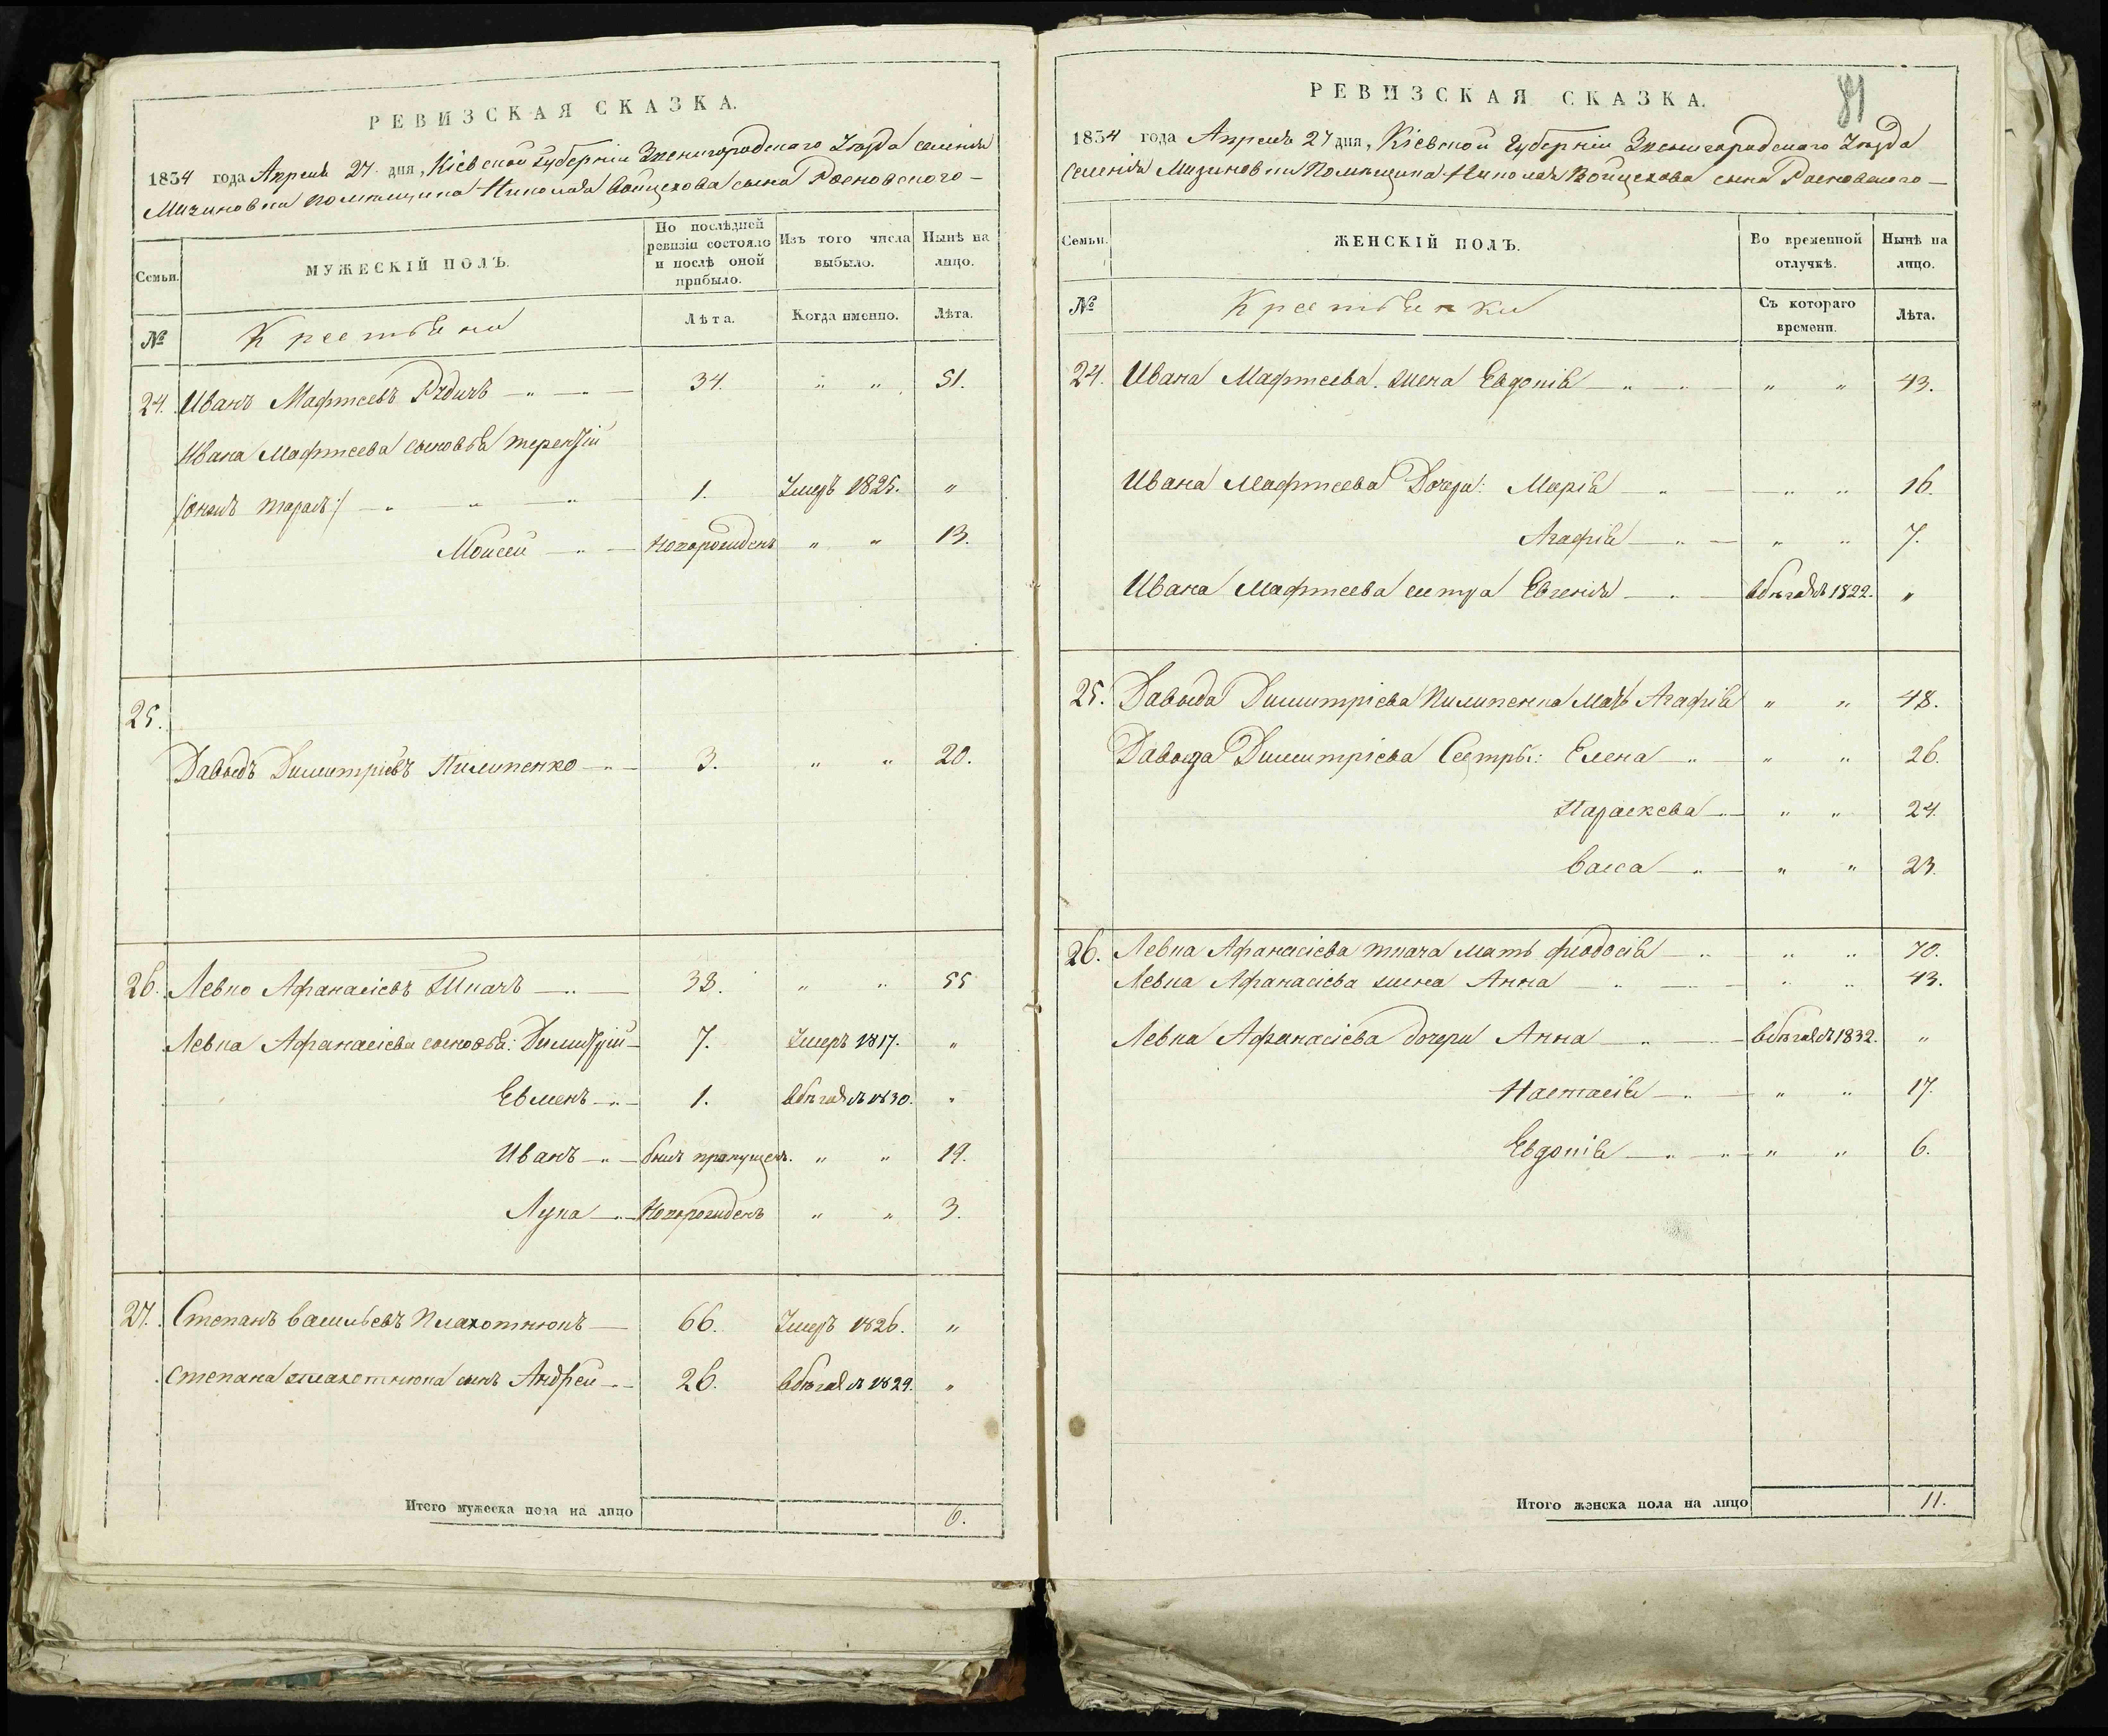 РЕВИЗСКАЯ СКАЗКА.
1834 года Апреля 27 дня, Кіевской Губерніи Звенигородского Уезда селенія
Мизиновки помѣщика Николая Войцехова сына Росновского
Семьи.
МУЖЕСКІЙ ПОЛЪ.
По послѣдней ревизіи состояло и послѣ оной прибыло.
Изъ того числа выбыло.
Нынѣ на лицо.
№
Крестьяни
Лѣта.
Когда именно.
Лѣта.
24. Иванъ Мафтеевъ 34. „ „ 51.
Ивана Мафтеева сыновья терентій
1. Умеръ 1825. „
Моисей новорожденъ „ „ 13.
25.
Давыдъ Димитріевъ Пилипенко 3. „ „ 20.
26. Левко Афанасіевъ Ткачъ 38. „ „ 55
Левка Афанасіева сыновья: Димитрій 7. Умеръ 1817. „
Евменъ 1. въ бѣгахъ съ 1830. „
Иванъ былъ пропущенъ. „ „ 19.
Лука Новорожденъ „ „ 3.
27. Степанъ Васильевъ Плахотнюкъ 66. Умеръ 1826. „
Степана плахотнюка сынъ Андрей 26. въ бѣгахъ съ 1829. „
Итого мужеска пола на лицо 6.
81
РЕВИЗСКАЯ СКАЗКА.
1834 года Апреля 27 дня, Кіевской Губерніи Звенигородского Уезда
Селенія Мизиновки Помѣщика Николая Войцехова сына Росновского
Семьи.
ЖЕНСКІЙ ПОЛЪ.
Во временной отлучкѣ.
Нынѣ на лицо.
№
Крестьянки
Съ котораго времени.
Лѣта.
24. Ивана Мафтеева жена Евдокія „ „ 43.
Ивана Мафтеева Дочери: Марія „ „ 16.
Агафія „ „ 7.
Ивана Мафтеева сестра Евгенія въ бѣгахъ съ 1822. „
25. Давыда Димитріева Пилипенка Мать Агафія „ „ 48.
Давыда Димитріева Сестры: Елена „ „ 26.
Параскева „ „ 24.
Васса „ „ 23.
26. Левка Афанасіева ткача мать феодосія „ „ 70.
Левка Афанасіева жена Анна „ „ 43.
Левка Афанасіева дочери Анна въ бѣгахъ съ 1832. „
Настасія „ „ 17.
Евдокія „ „ 6.
Итого женска пола на лицо 11.